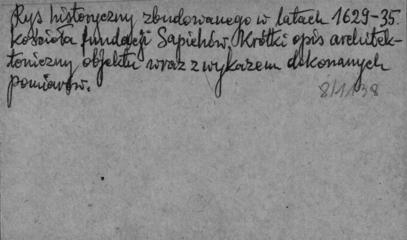 Rys historyczny zbudowanego w latach 1629-35.
kościoła fundacji Sapiehów. Krótki opis architek-
toniczny objektu wraz z wykazem dokonanych
pomiarów.
8/1138